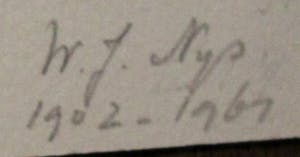 W. J. Nyp
1902 - 1967